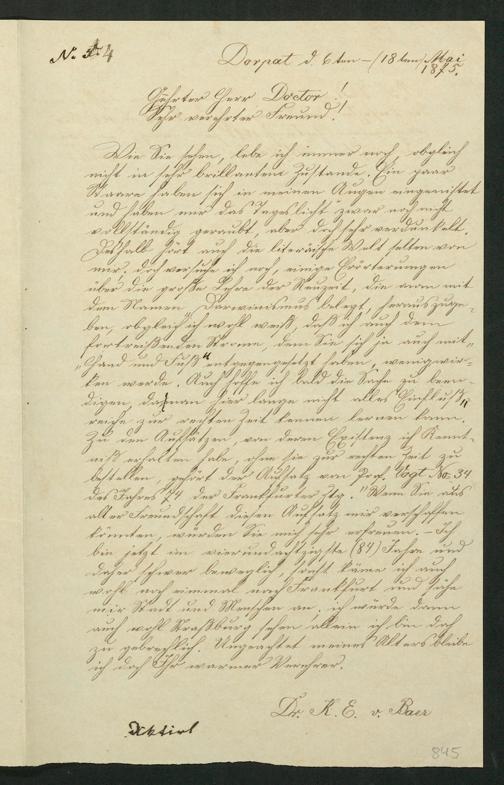 N. 4
Dorpat d. 6ten – (18ten) Mai
1875.
Geehrter Herr Doctor!
Sehr verehrter Freund!
Wie Sie sehen, lebe ich immer noch, obgleich
nicht in sehr brillantem Zustande. Ein paar
Staare haben sich in meinen Augen eingenistet
und haben mir das Tageslicht zwar noch nicht
vollständig geraubt, aber doch sehr verdunkelt.
Deßhalb hört auch die literärische Welt selten von
mir, doch versuche ich noch, einige Erörterungen
über die große Lehre der Neuzeit, die man mit
dem Namen Darwinismus belegt, herauszuge-
ben, obgleich ich wohl weiß, daß ich auch dem
fortreißenden Strome, dem Sie sich ja auch mit
„Hand und Fuß“ entgegengesetzt haben, wenig wir-
ken werde. Auch hoffe ich bald die Sache zu been-
digen, da man hier lange nicht alles Einfluß-
reiche zur rechten Zeit kennen lernen kann.
Zu den Aufsätzen, von deren Existenz ich Kennt-
niß erhalten habe, ohne sie zur rechten Zeit zu
bestellen, gehört der Aufsatz von Prof. Vogt No. 34
des Jahres 74 der Frankfurter Ztg. Wenn Sie aus
alter Freundschaft diesen Aufsatz mir verschaffen
könnten, würden Sie mich sehr erfreuen. – Ich
bin jetzt im vierundachtzigste (84) Jahre und
daher schwer beweglich, sonst käme ich auch
wohl noch einmal nach Frankfurt und sähe
mir Stadt und Menschen an. ich würde dann
auch wohl Straßburg sehen allein ich bin doch
zu gebrechlich. Ungeachtet meines Alters bleibe
ich doch Ihr warmer Verehrer.
Dr. K. E. v. Baer
diktirt
845